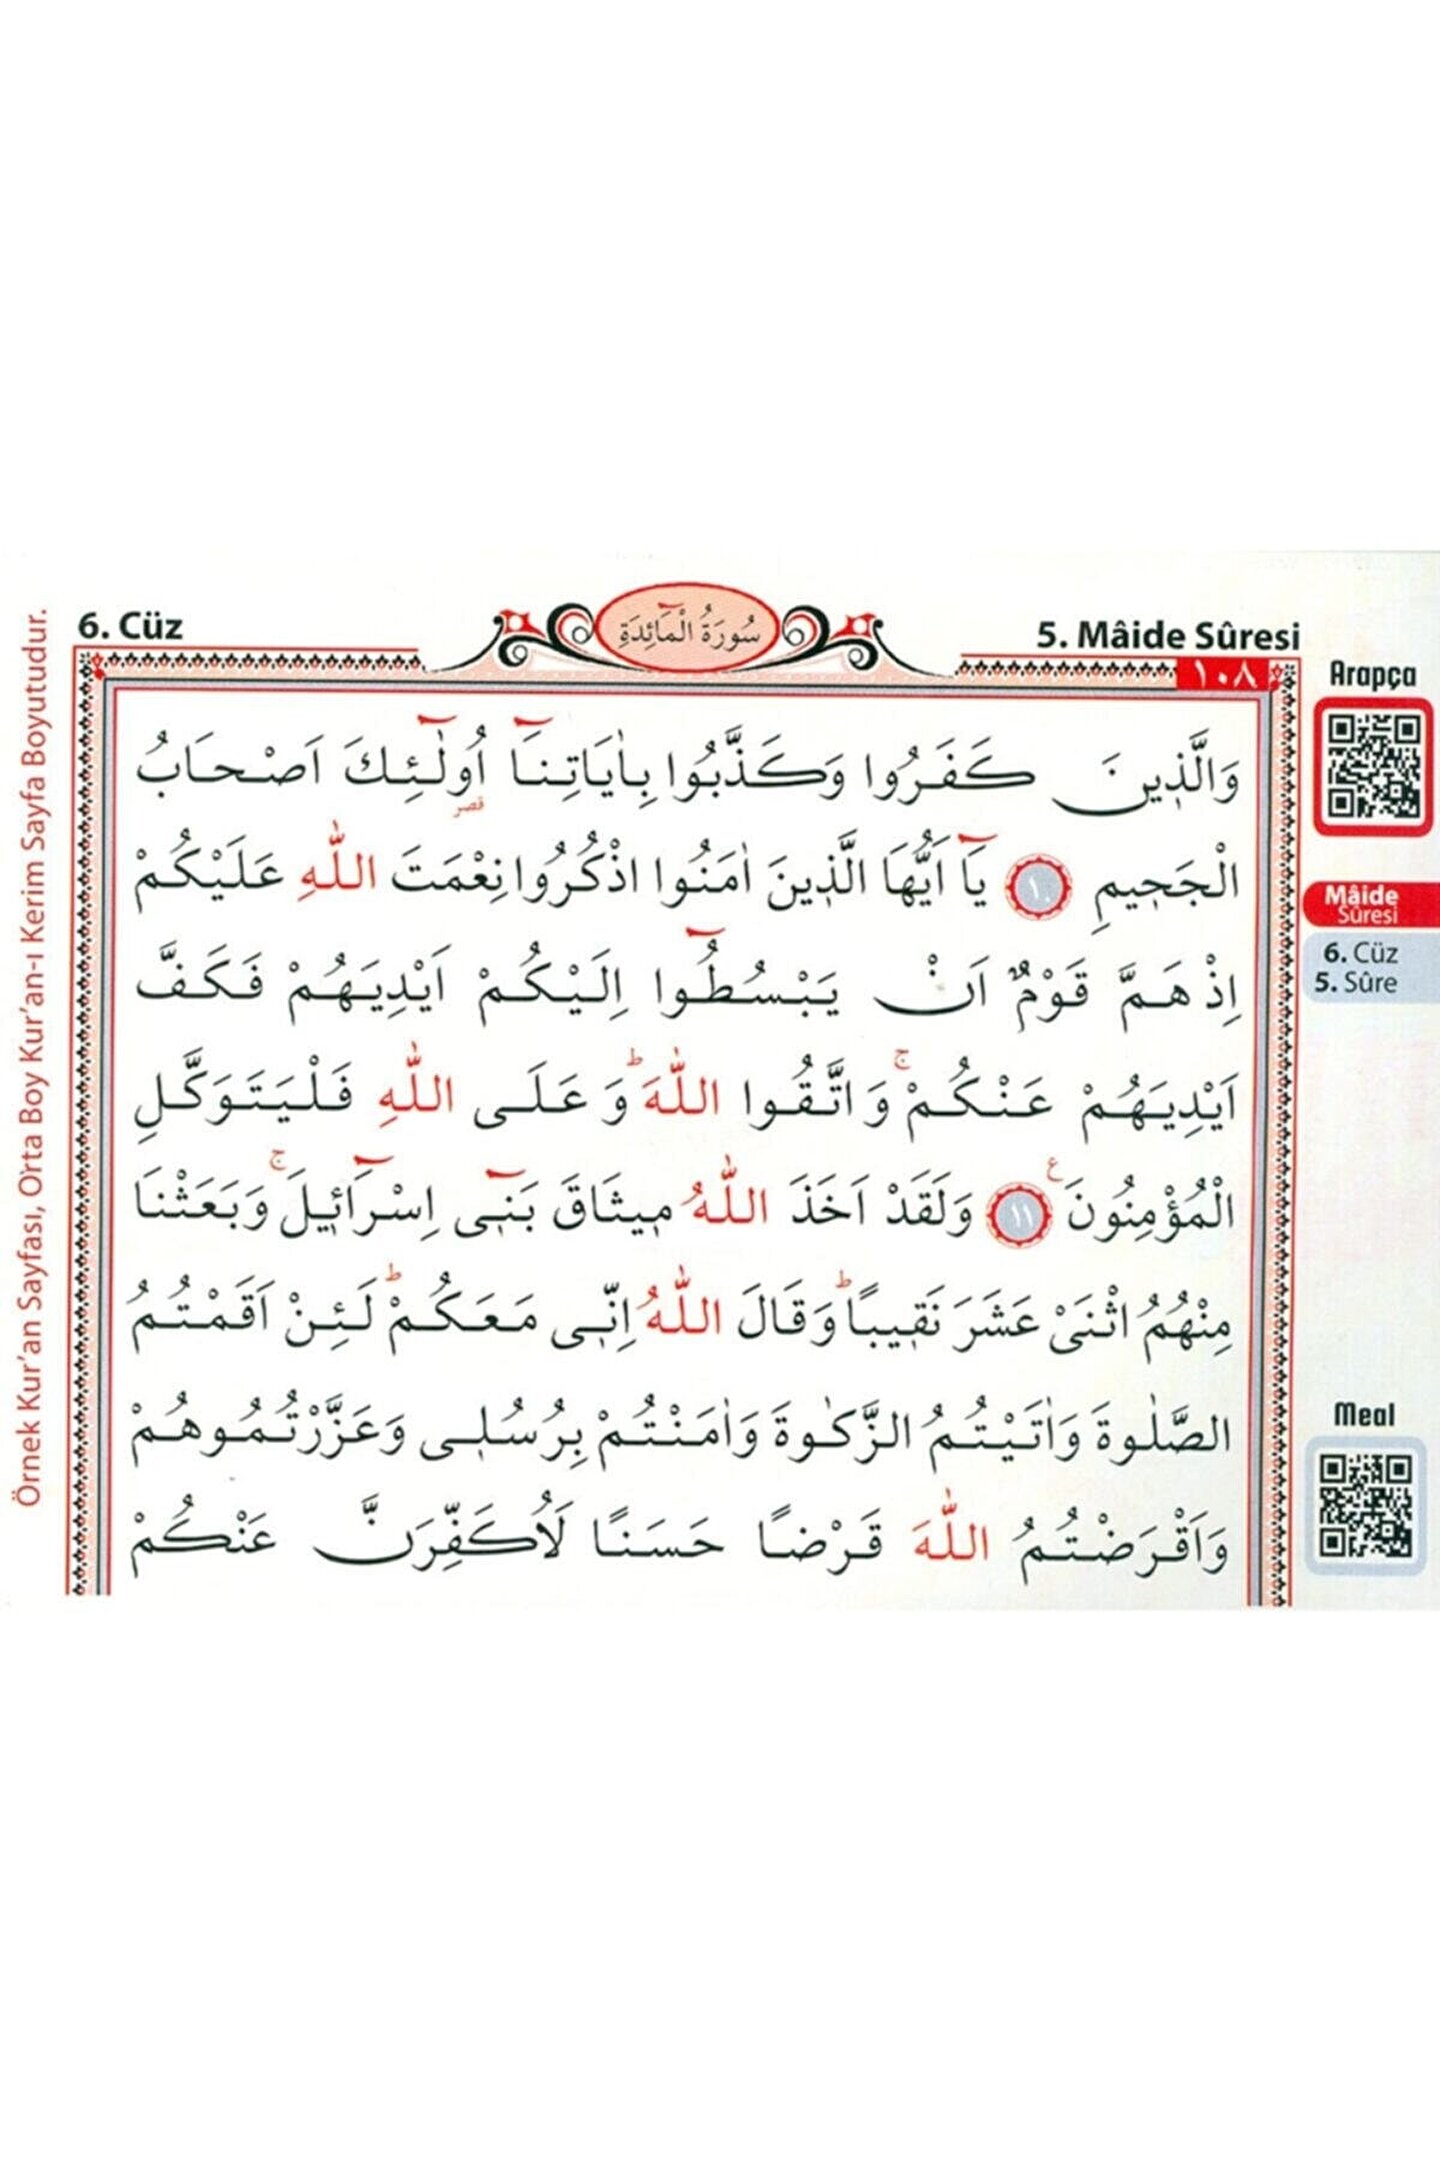 6. Cüz
سُورَةُ الْمَٓائِدَةِ
5. Mâide Sûresi
١٠٨
وَالَّذ۪ينَ كَفَرُوا وَكَذَّبُوا بِاٰيَاتِنَٓا اُو۬لٰٓئِكَ اَصْحَابُ
قصر
الْجَح۪يمِ ١٠ يَٓا اَيُّهَا الَّذ۪ينَ اٰمَنُوا اذْكُرُوا نِعْمَتَ اللّٰهِ عَلَيْكُمْ
اِذْ هَمَّ قَوْمٌ اَنْ يَبْسُطُٓوا اِلَيْكُمْ اَيْدِيَهُمْ فَكَفَّ
اَيْدِيَهُمْ عَنْكُمْۚ وَاتَّقُوا اللّٰهَۜ وَعَلَى اللّٰهِ فَلْيَتَوَكَّلِ
الْمُؤْمِنُونَ ع ١١ وَلَقَدْ اَخَذَ اللّٰهُ م۪يثَاقَ بَن۪ٓي اِسْرَٓائ۪لَۚ وَبَعَثْنَا
مِنْهُمُ اثْنَيْ عَشَرَ نَق۪يباًۜ وَقَالَ اللّٰهُ اِنّ۪ي مَعَكُمْۜ لَئِنْ اَقَمْتُمُ
الصَّلٰوةَ وَاٰتَيْتُمُ الزَّكٰوةَ وَاٰمَنْتُمْ بِرُسُل۪ي وَعَزَّرْتُمُوهُمْ
وَاَقْرَضْتُمُ اللّٰهَ قَرْضاً حَسَناً لَاُكَفِّرَنَّ عَنْكُمْ
Arapça
Mâide
Sûresi
6. Cüz
5. Sûre
Meal
Örnek Kur'an Sayfası, Orta Boy Kur'an-ı Kerim Sayfa Boyutudur.